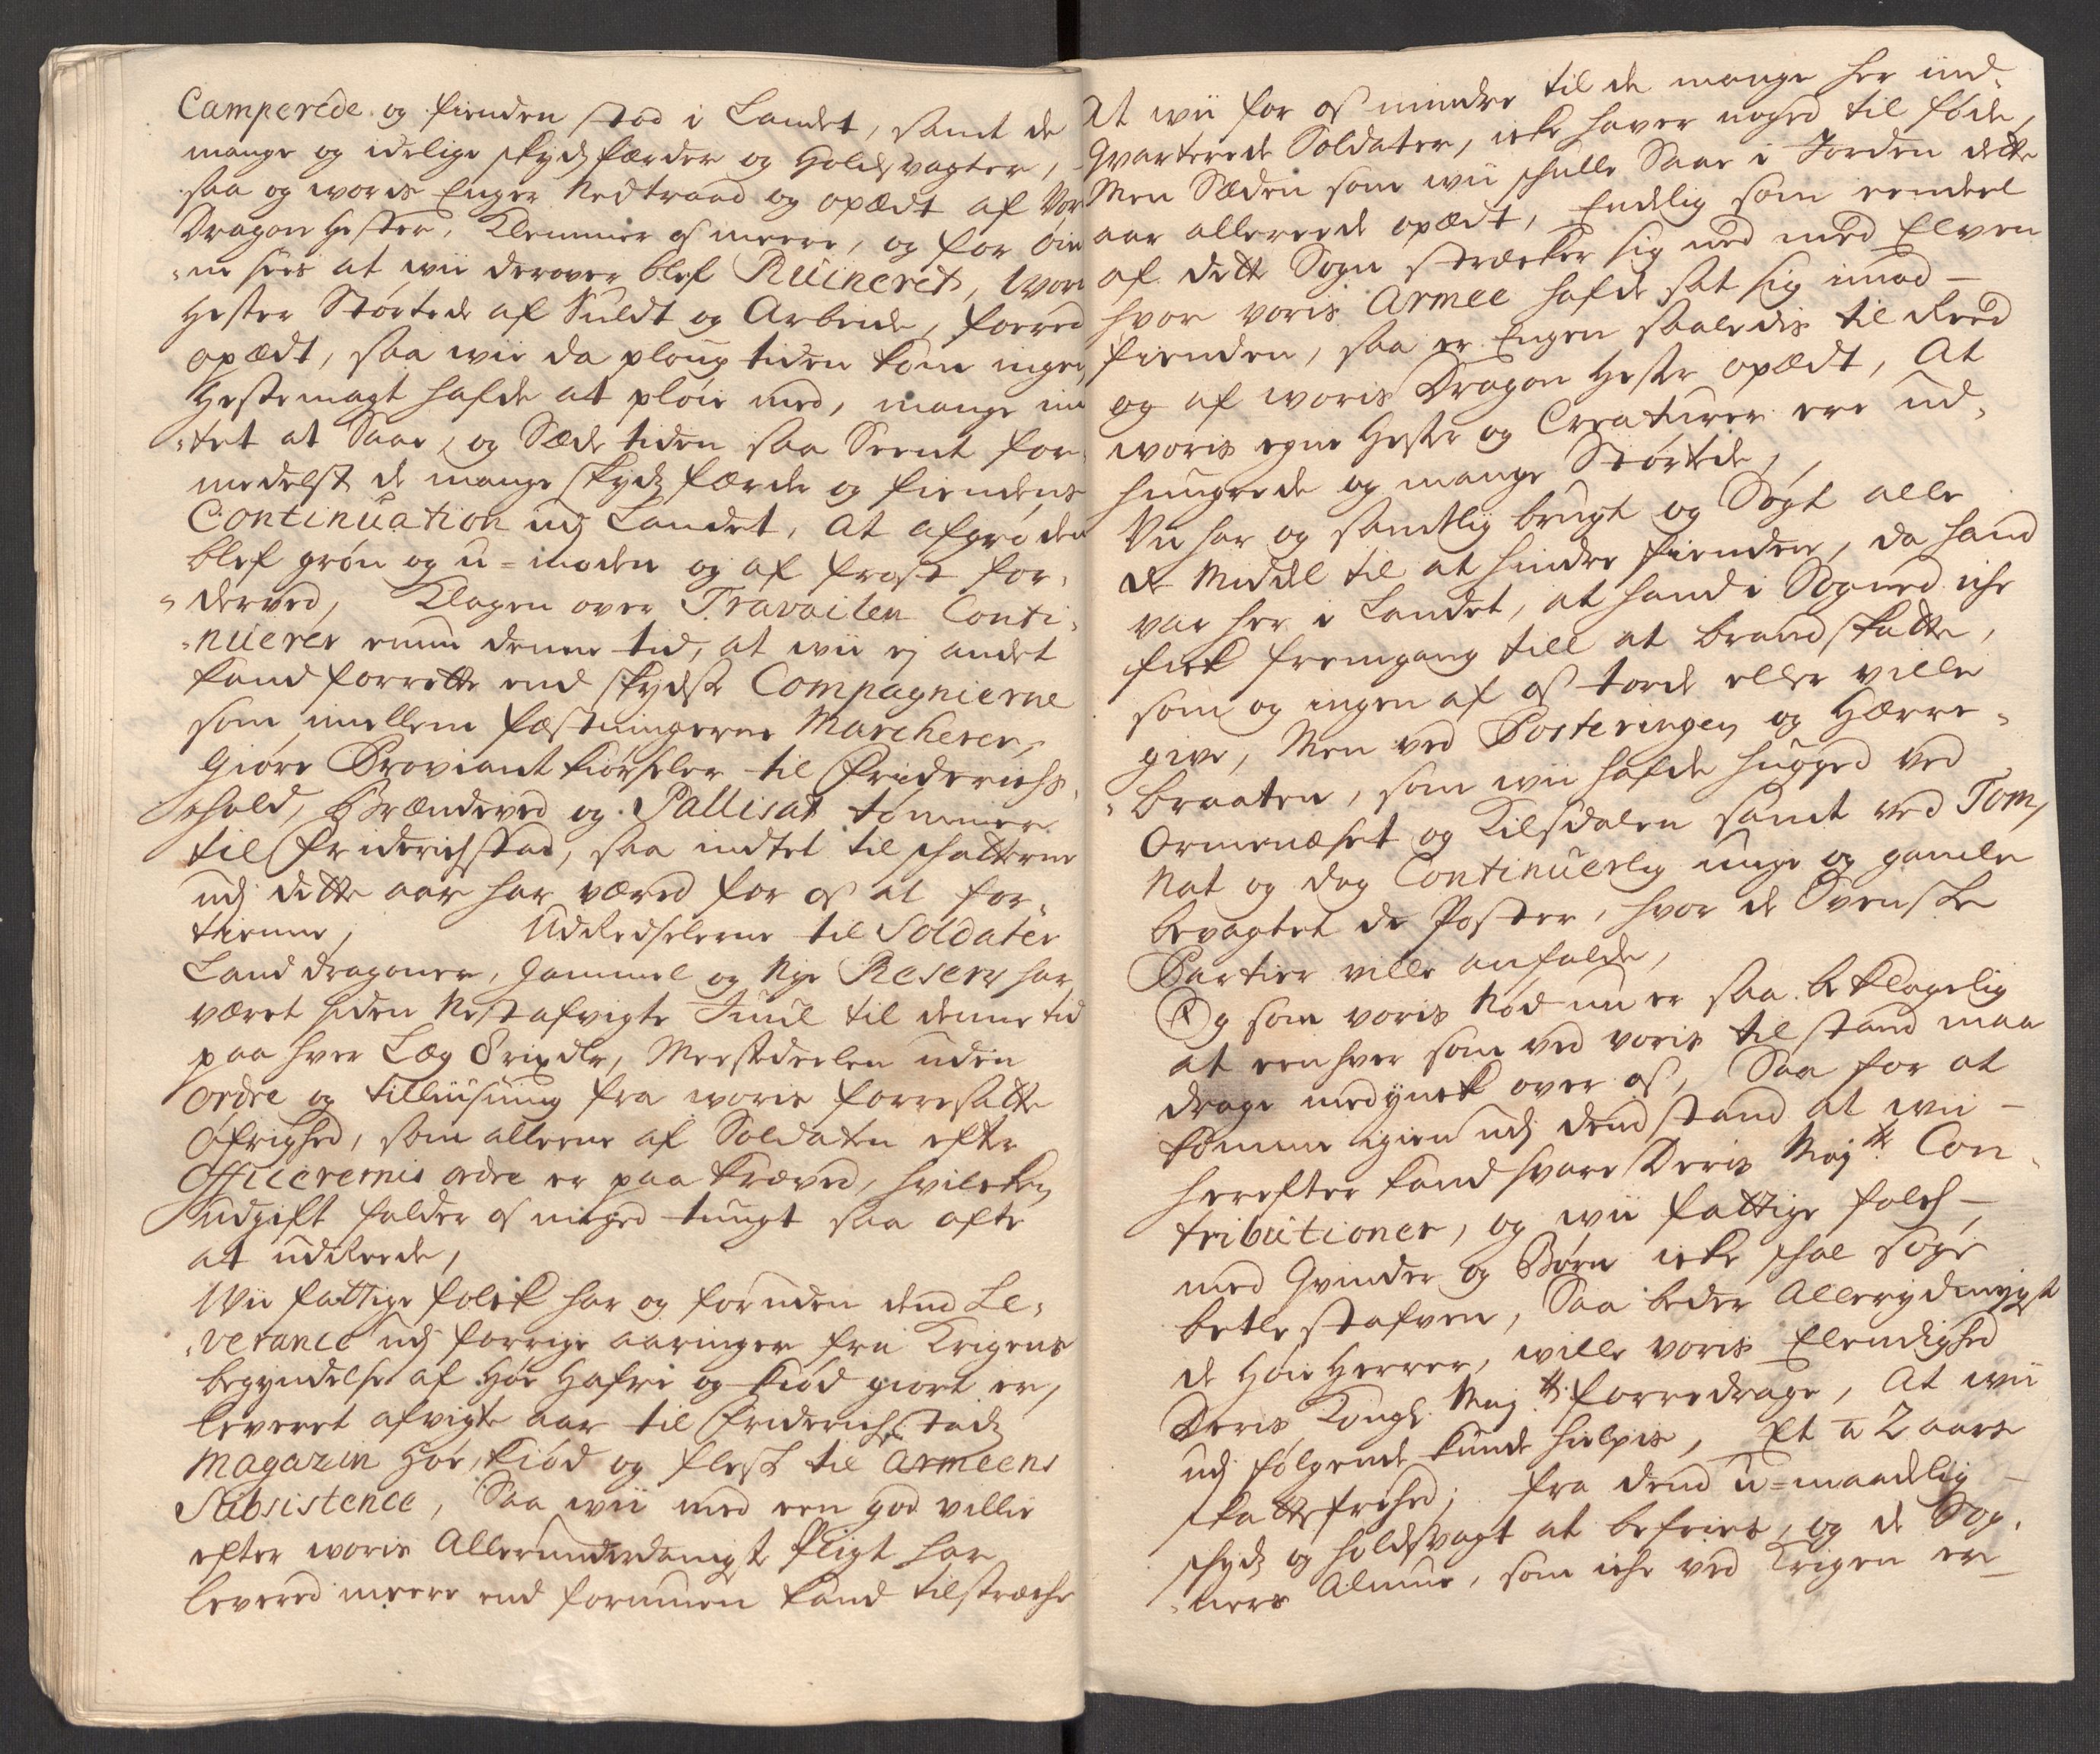 Camperede og fienden stod i Landet, samt de
mange og idelige skydsfærder og Holdsvagter,
saa og woris Enger Nedtraad og opædt af Vor
Dragon Hester, Klemmer os meere, og for øin
-ne sees at wii derover blef Ruineret, Wore
Hester Størtede af Suldt og Arbeide, foeret
opædt, saa wii da ploug tiden kom ingen
Hestemagt hafde at pløie med, mange in
-tet at Saae, og Sæde tiden saa Seent for-
medelst de mange skyds færde og fiendens
Continuation udj Landet, at afgrøden
blef grøn og u-moden og af frost for-
-derved, Klagen over Travailen Conti-
-nuerer ennu denne tid, at wii ej andet
kand forrette end skydse Compagnierne
som imellem fæstningerne Marcherer,
Giøre Proviant kiørseler til Friderichs-
-hald, Brændeved og Pallisat tømmer
til Friderichstad, saa indtet til schatterne
udj dette aar har været for os at for-
tienne, Udredselerne til Soldater
Land dragoner, Gammel og Nye Reserv har
været siden Nestafvigte Juul til denne tid
paa hver Læg 8 rixdlr, Meestedeelen uden
ordre og tilliusning fra woris forresatte
Øfrighed, som alleene af Soldaten efter
Officerernis ordre er paa kræved, hvilcken
udgift falder os meged tungt saa ofte
at udreede,
Wii fattige folck har og foruden dend Le-
-verance udj forrige aaringer fra Krigens
begyndelse af Høe Hafre og kiød giort er,
leveret afvigte aar til Friderichstads
Magazin Høe, kiød og flesk til Armeens
Subsistence, Saa wii med een god villie
efter woris Allerunderdanigst Pligt har
levered meere end formuen kand tilstræche
At wii for os mindre til de mange her ind-
Qvarterede Soldater, icke haver noged til føde,
Men Sæden som wii schulle Saae i Jorden dette
aar allereede opædt, Endelig som eendeel
af dette Sogn strecker sig ned med Elven
hvor voris Armee hafde sat sig imod
fienden, saa er Engen saaledis til Reed
og af woris Dragon Hester opædt, At
woris egne Hester og Creaturer ere ud-
hungrede og mange Størtede,
Vii har og samtlig brugt og Søgt alle
de Middel til at hindre fienden, da hand
var her i Landet, at hand i Sogned iche
fick fremgang till at brandskatte,
som og ingen af os torde eller ville
give, Men ved Posteringen og Hærre-
-braaten, som wii hafde hugged ved
Ormenæset og Kilsdalen samt ved Tom,
Nat og dag Continuerlig unge og gamle
bevagtet de Poster, hvor de Svenske
Partier ville anfalde,
Og som voris Nød nu er saa beklagelig
at een hver som ved voris tilstand maa
drage medynck over os, Saa for at
komme igien udj dend stand at wii
herefter kand svare Deris Maj:tt Con-
tributioner, og wii fattige folch
med Qvinder og Børn icke schal søge
betle stafven, Saa beder Allerydmygst
de Høie Herrer, wille voris Elendighed
Deris Kongl. Maj:tt forredrage, At wii
udj følgende kunde hielpis, Et a 2 aars
skattefrihed; fra dend u-maadelig
schyds og holdsvagt at befries, og de Sog-
-ners Almue, som iche ved Krigen er